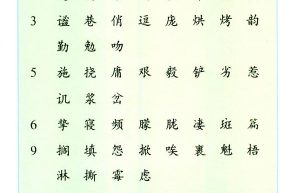 3 谧 巷 俏 逗 庞 烘 烤 韵
勤 勉 吻
5 施 挠 庸 艰 毅 铲 劣 惹
讥 浆 岔
6 挚 寝 频 朦 胧 凄 斑 篇
9 搁 填 怨 掀 唉 裹 魁 梧
淋 撕 霉 虑